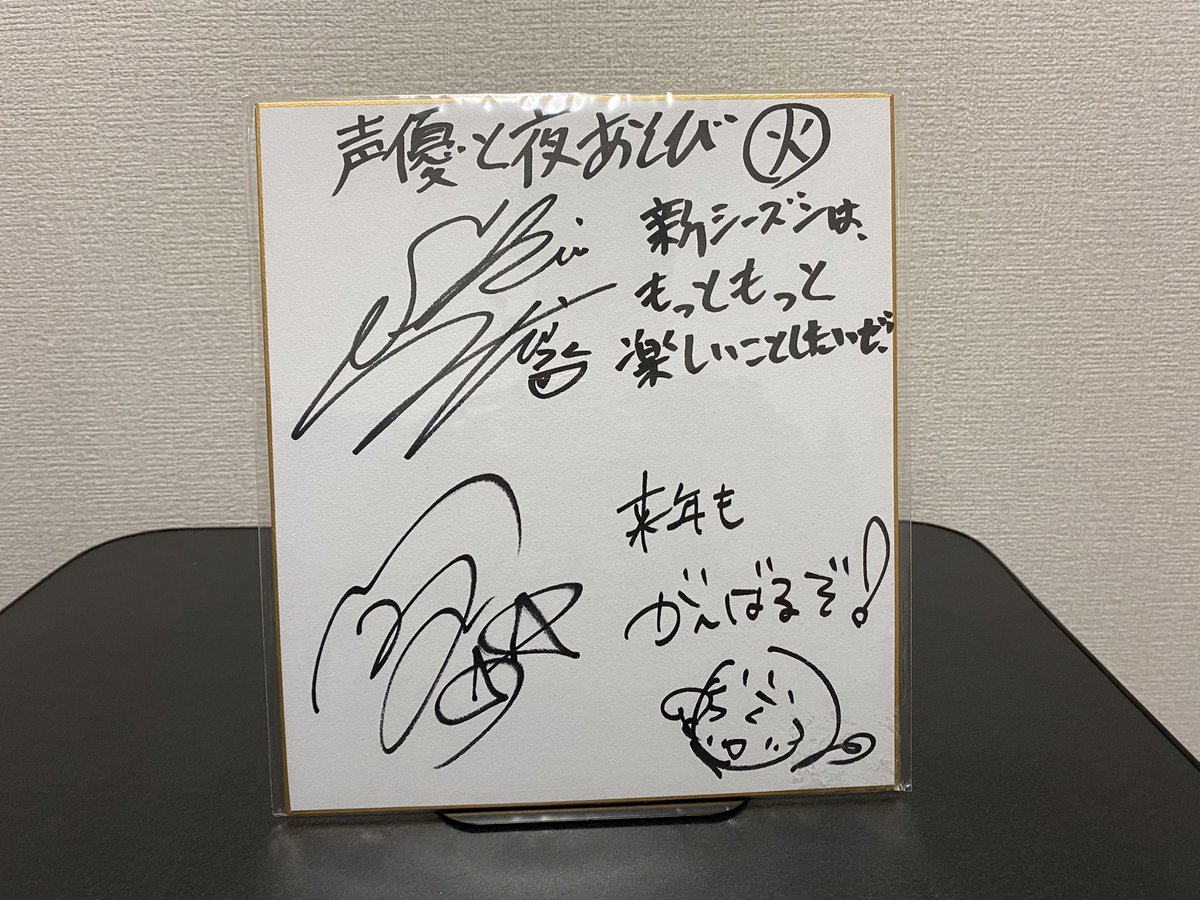 声優と夜あそび ㊋
新シーズンは、
もっともっと
楽しいことしたいぜ。
来年も
がんばるぞ!